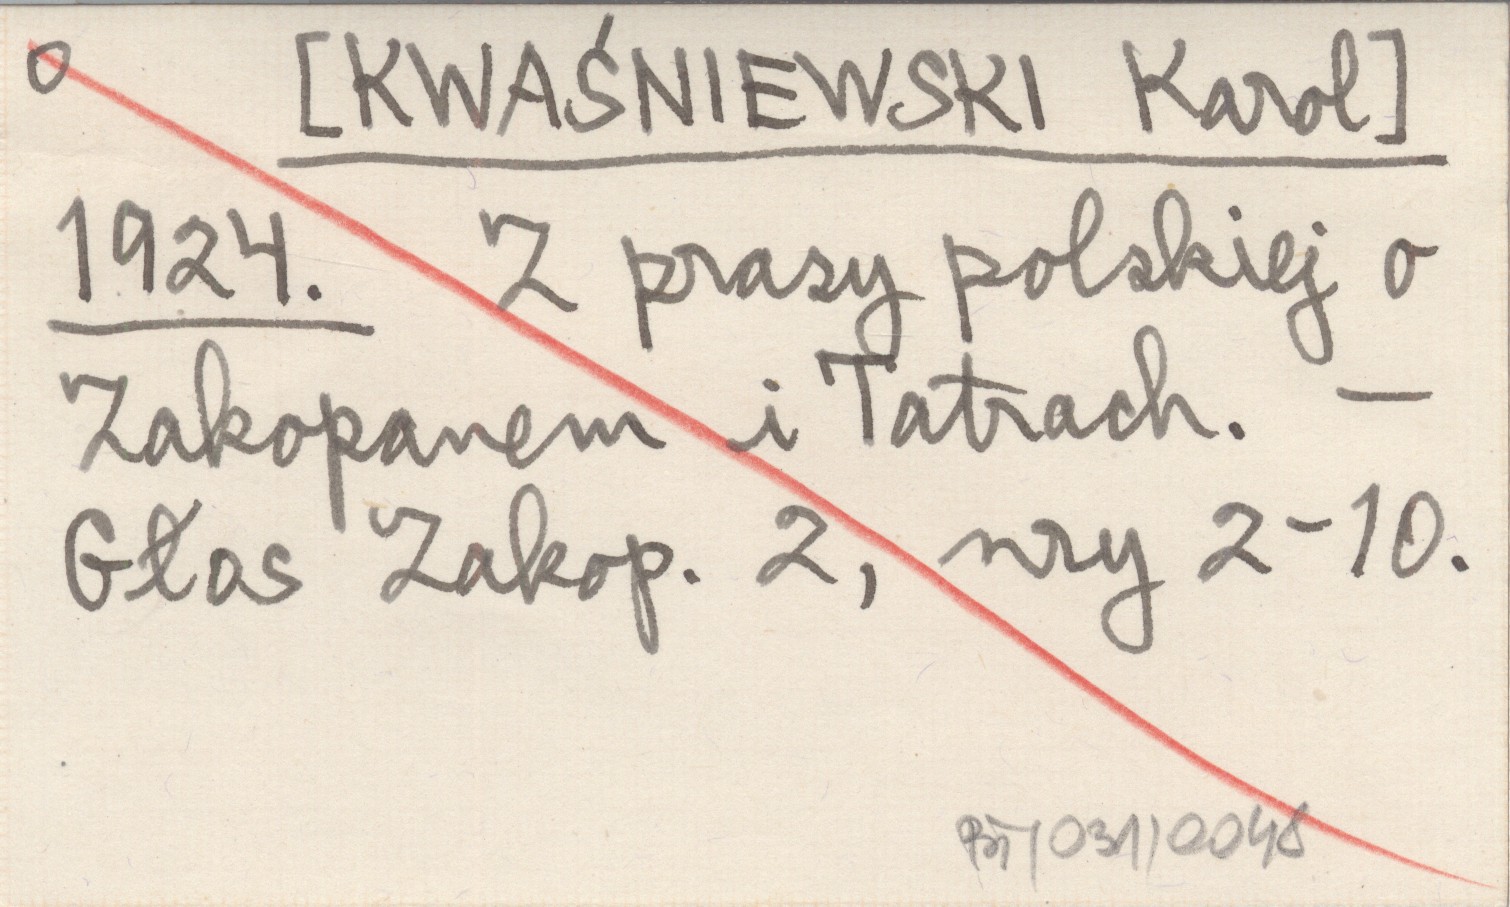 o [KWAŚNIEWSKI Karol]
1924. Z prasy polskiej o
Zakopanem i Tatrach. —
Głos Zakop. 2, nry 2-10.
031/0048